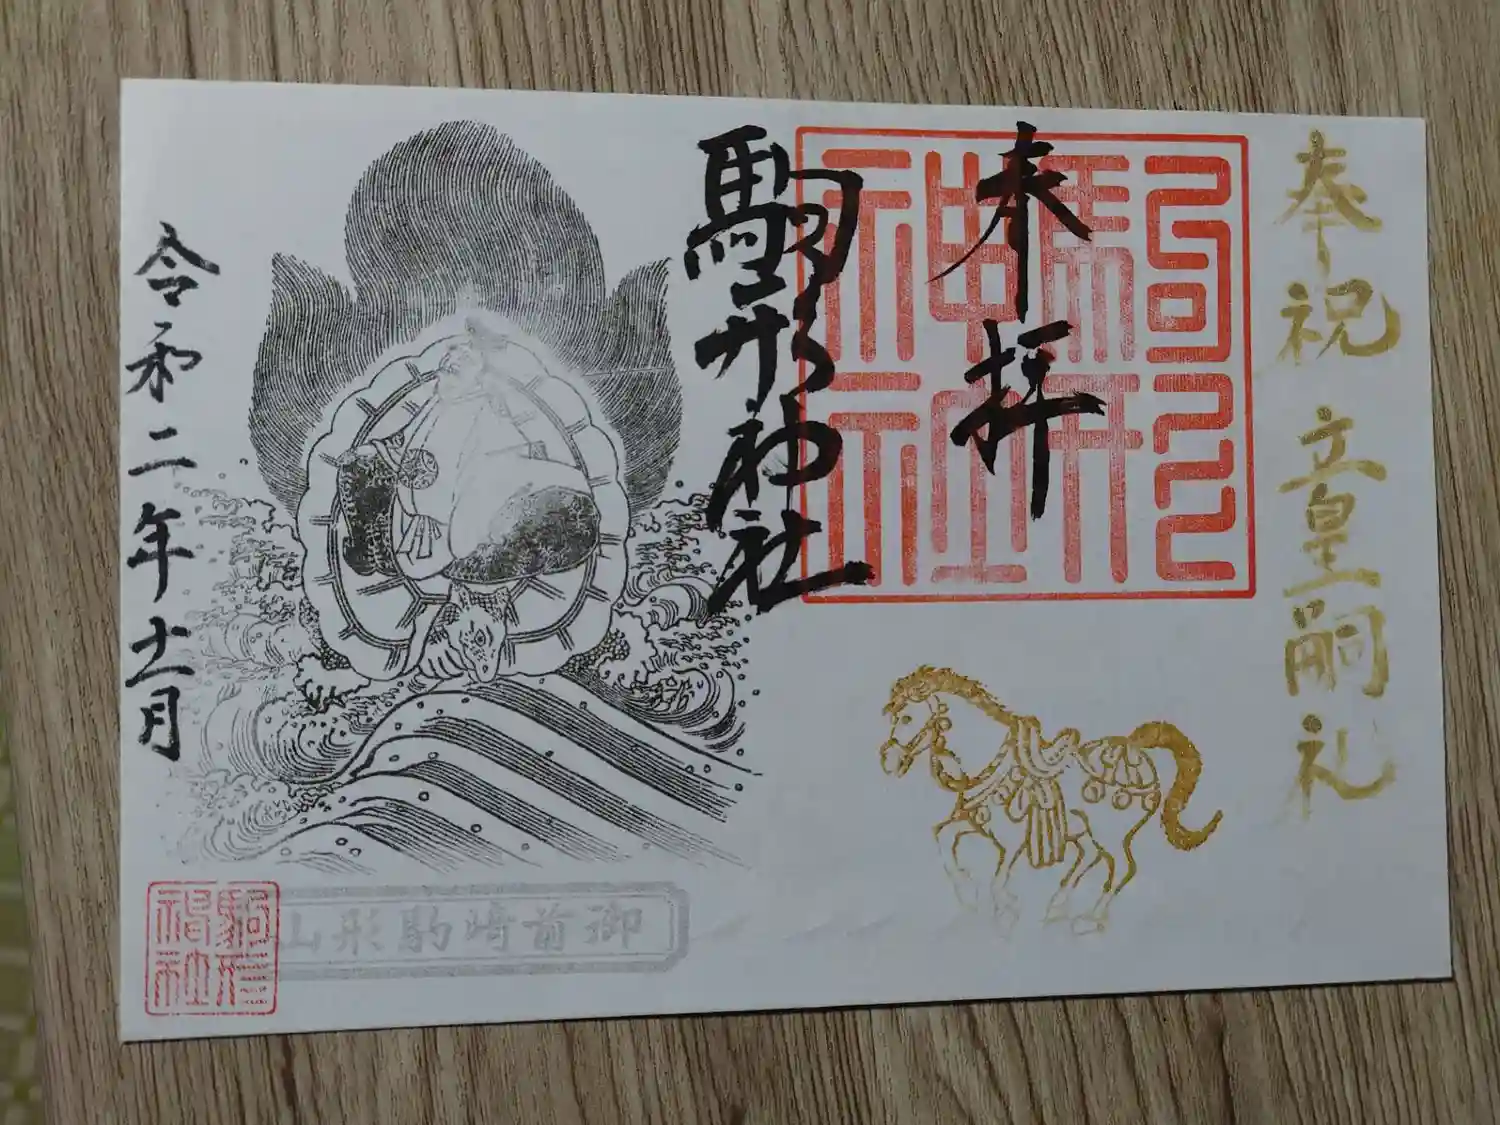 奉祝 立皇嗣礼
奉拝
駒形神社
駒形
神社
令和二年十一月
御前崎駒形山
駒形
神社